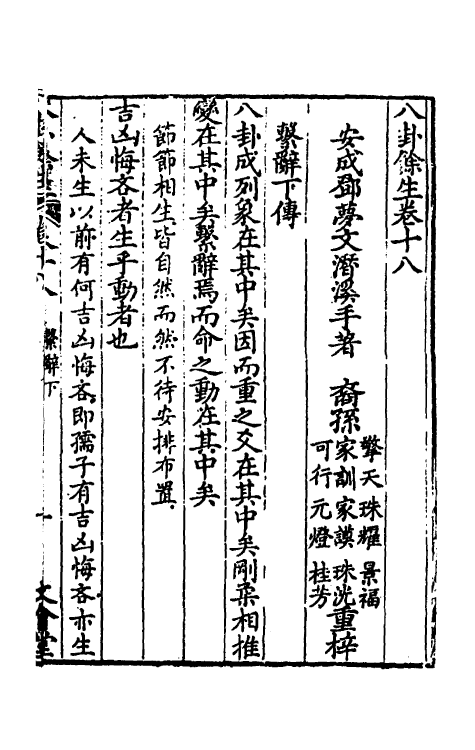 八卦餘生卷十八
安成鄧夢文潛溪手著 裔孫
擎天 珠耀 景福
家訓 家謨 珠洸
可行 元燈 桂芳
重梓
繫辭下傳
八卦成列象在其中矣因而重之爻在其中矣剛柔相推
變在其中矣繫辭焉而命之動在其中矣
節節相生皆自然而然不待安排布置
吉凶悔吝者生乎動者也
人未生以前有何吉凶悔吝即孺子有吉凶悔吝亦生
繫辭下